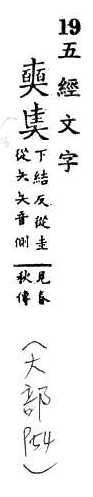 19 五經文字
下結反從圭
從夨夨音側
見春
秋傳
(大部 P54)